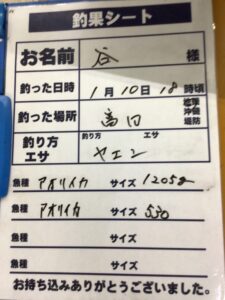 釣果シート
お名前 谷 様
釣った日時 1月10日18時頃
釣った場所 高田 地磯 沖磯 堤防
釣り方 エサ
釣り方 エサ ヤエン
魚種 アオリイカ サイズ 1205g
魚種 アオリイカ サイズ 530
魚種 サイズ
魚種 サイズ
お持ち込みありがとうございました。